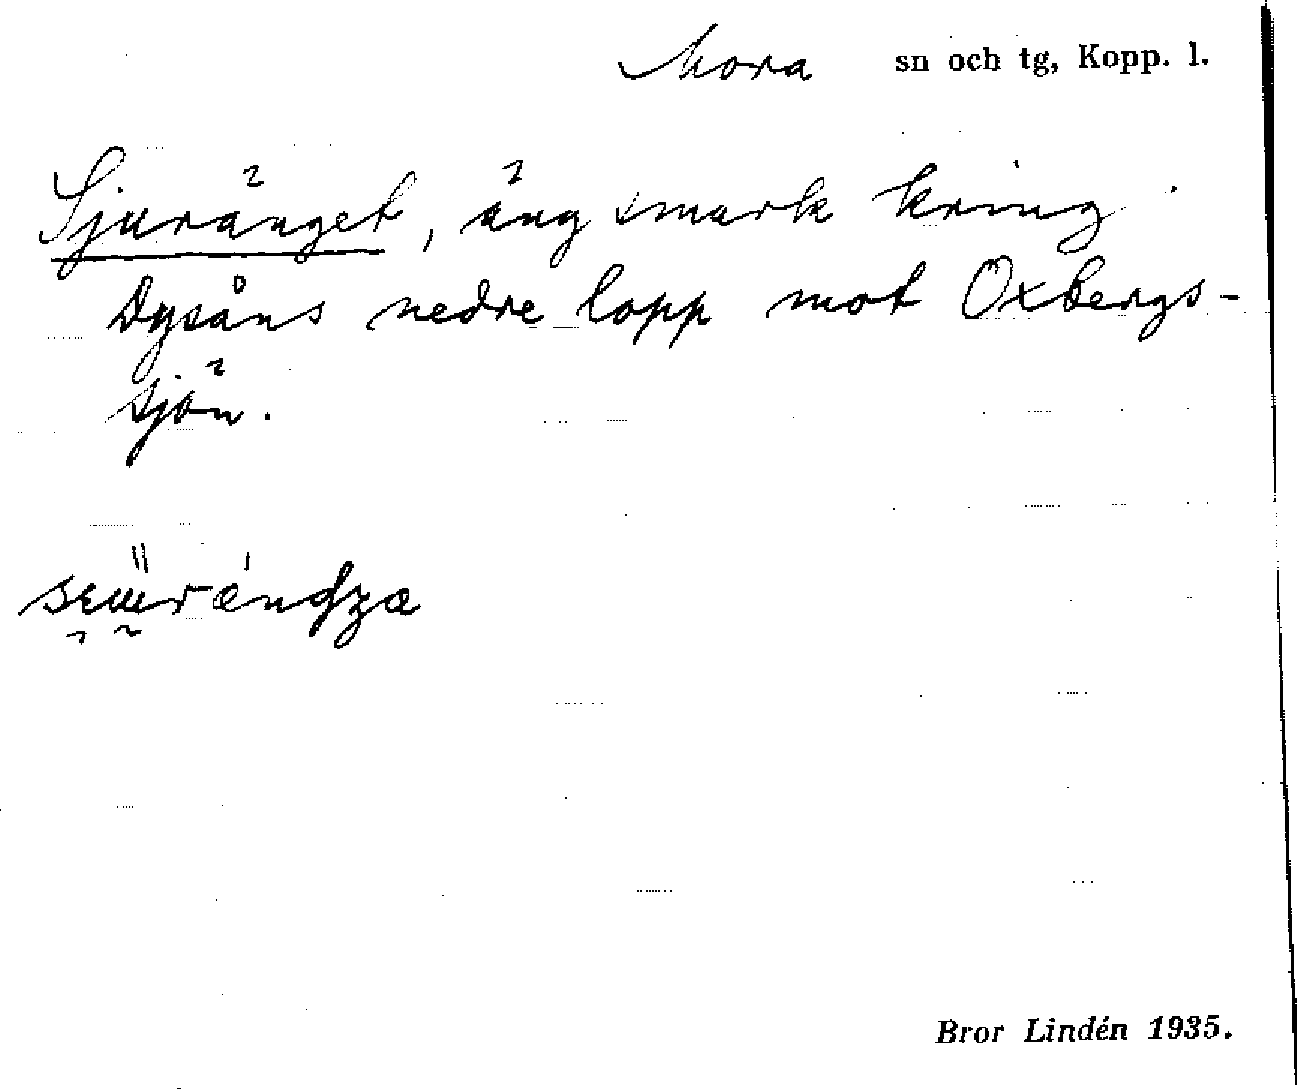 Mora sn och tg, Kopp. l.
Sjuränget, ängsmark kring
Dysåns nedre lopp mot Oxbergs-
sjön.
Bror Lindén 1935.